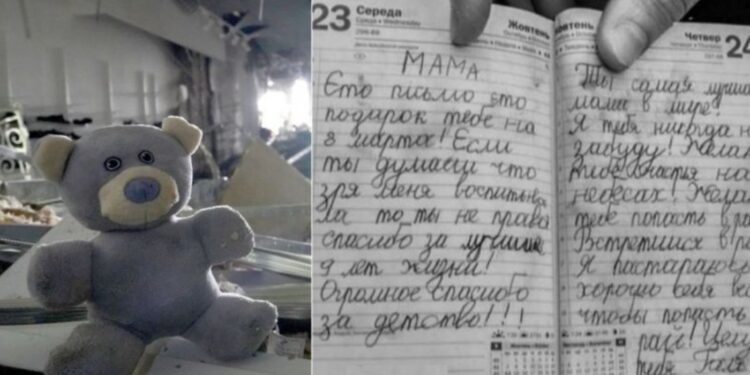 23
Середа
Среда • Wednesday
296-69
Жовтень
МАМА
Ето письмо ето
подарок тебе на
8 марта! Если
ты думаеш что
зря меня воспитыва
ла то ты не права
спасибо за лучшие
9 лет жизни!
Огромное спасибо
за детство!!!
Жовтень
Четвер
24
Ты самая лучшая
мама в мире!
Я тебя никогда не
забуду! Желаю
тебе на
небесах! Желаю
тебе попасть в ра
Встретимся в
Я
хорошо себя
чтобы попасть
рай! Целу
тебя Галя